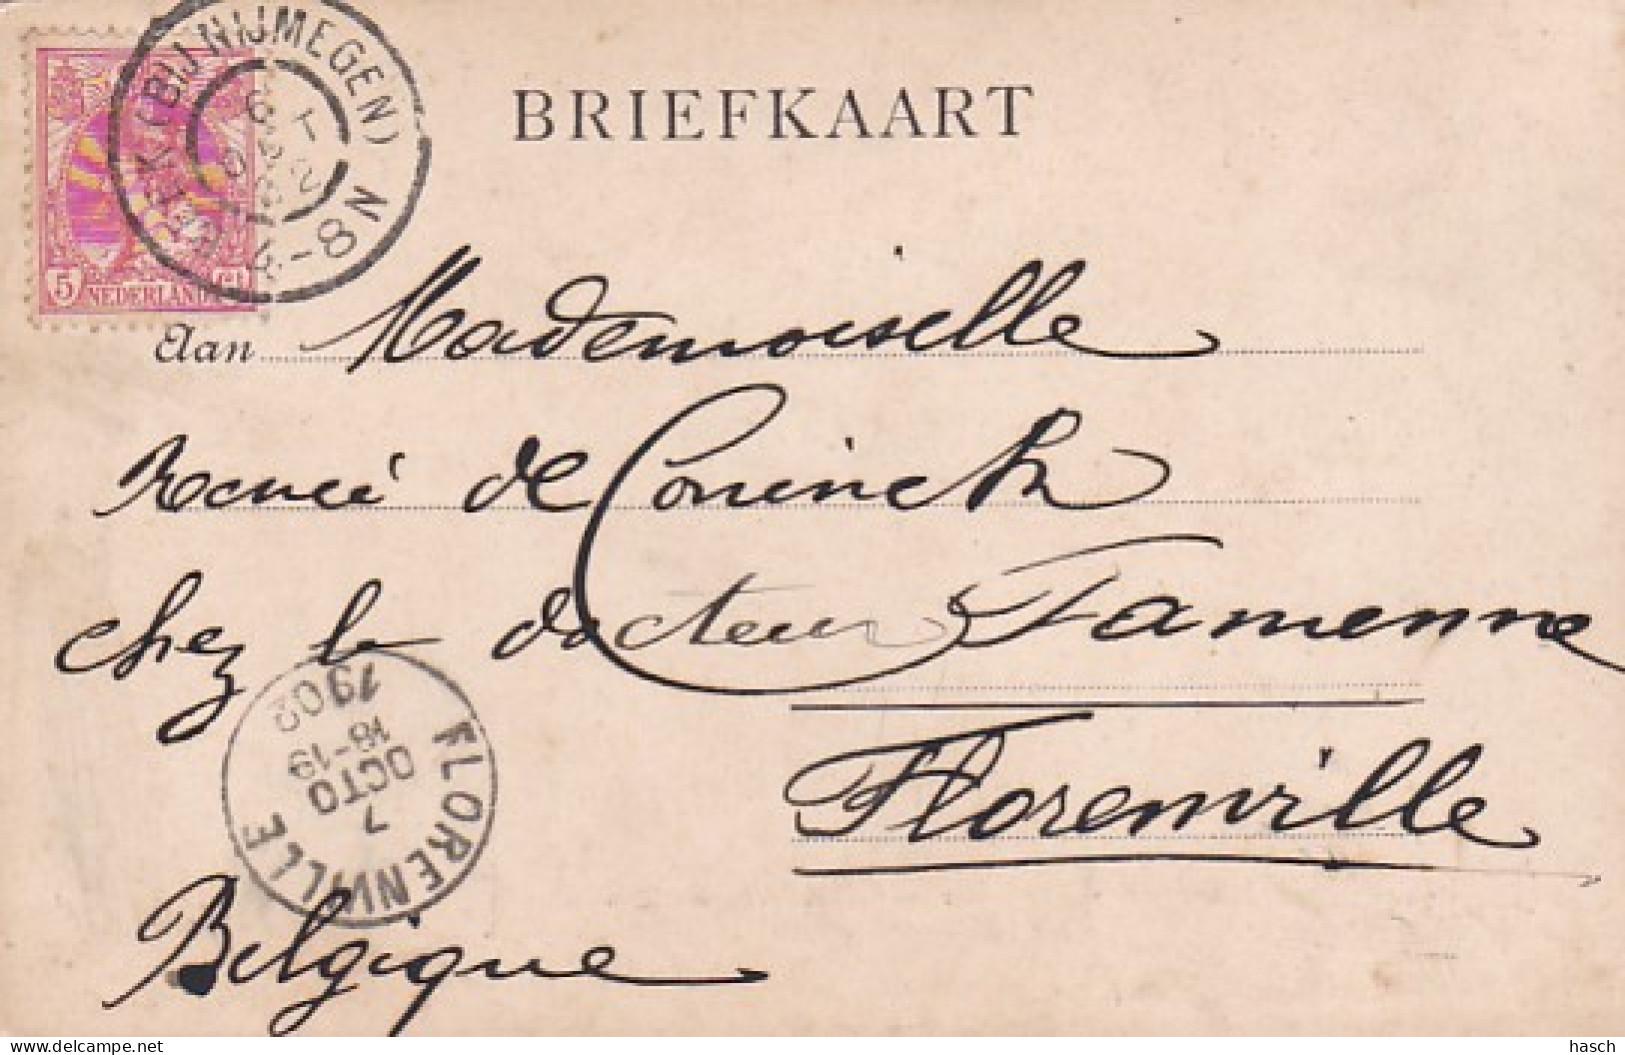 BEEK (BIJ NIJMEGEN)
4-8 N
5 NEDERLAND
BRIEFKAART
Aan Mademoiselle
Renée de Coninck
chez le docteur Famenne
Florenville
Belgique
FLORENVILLE
7
OCTO
18-19
1902
hasch
www.delcampe.net